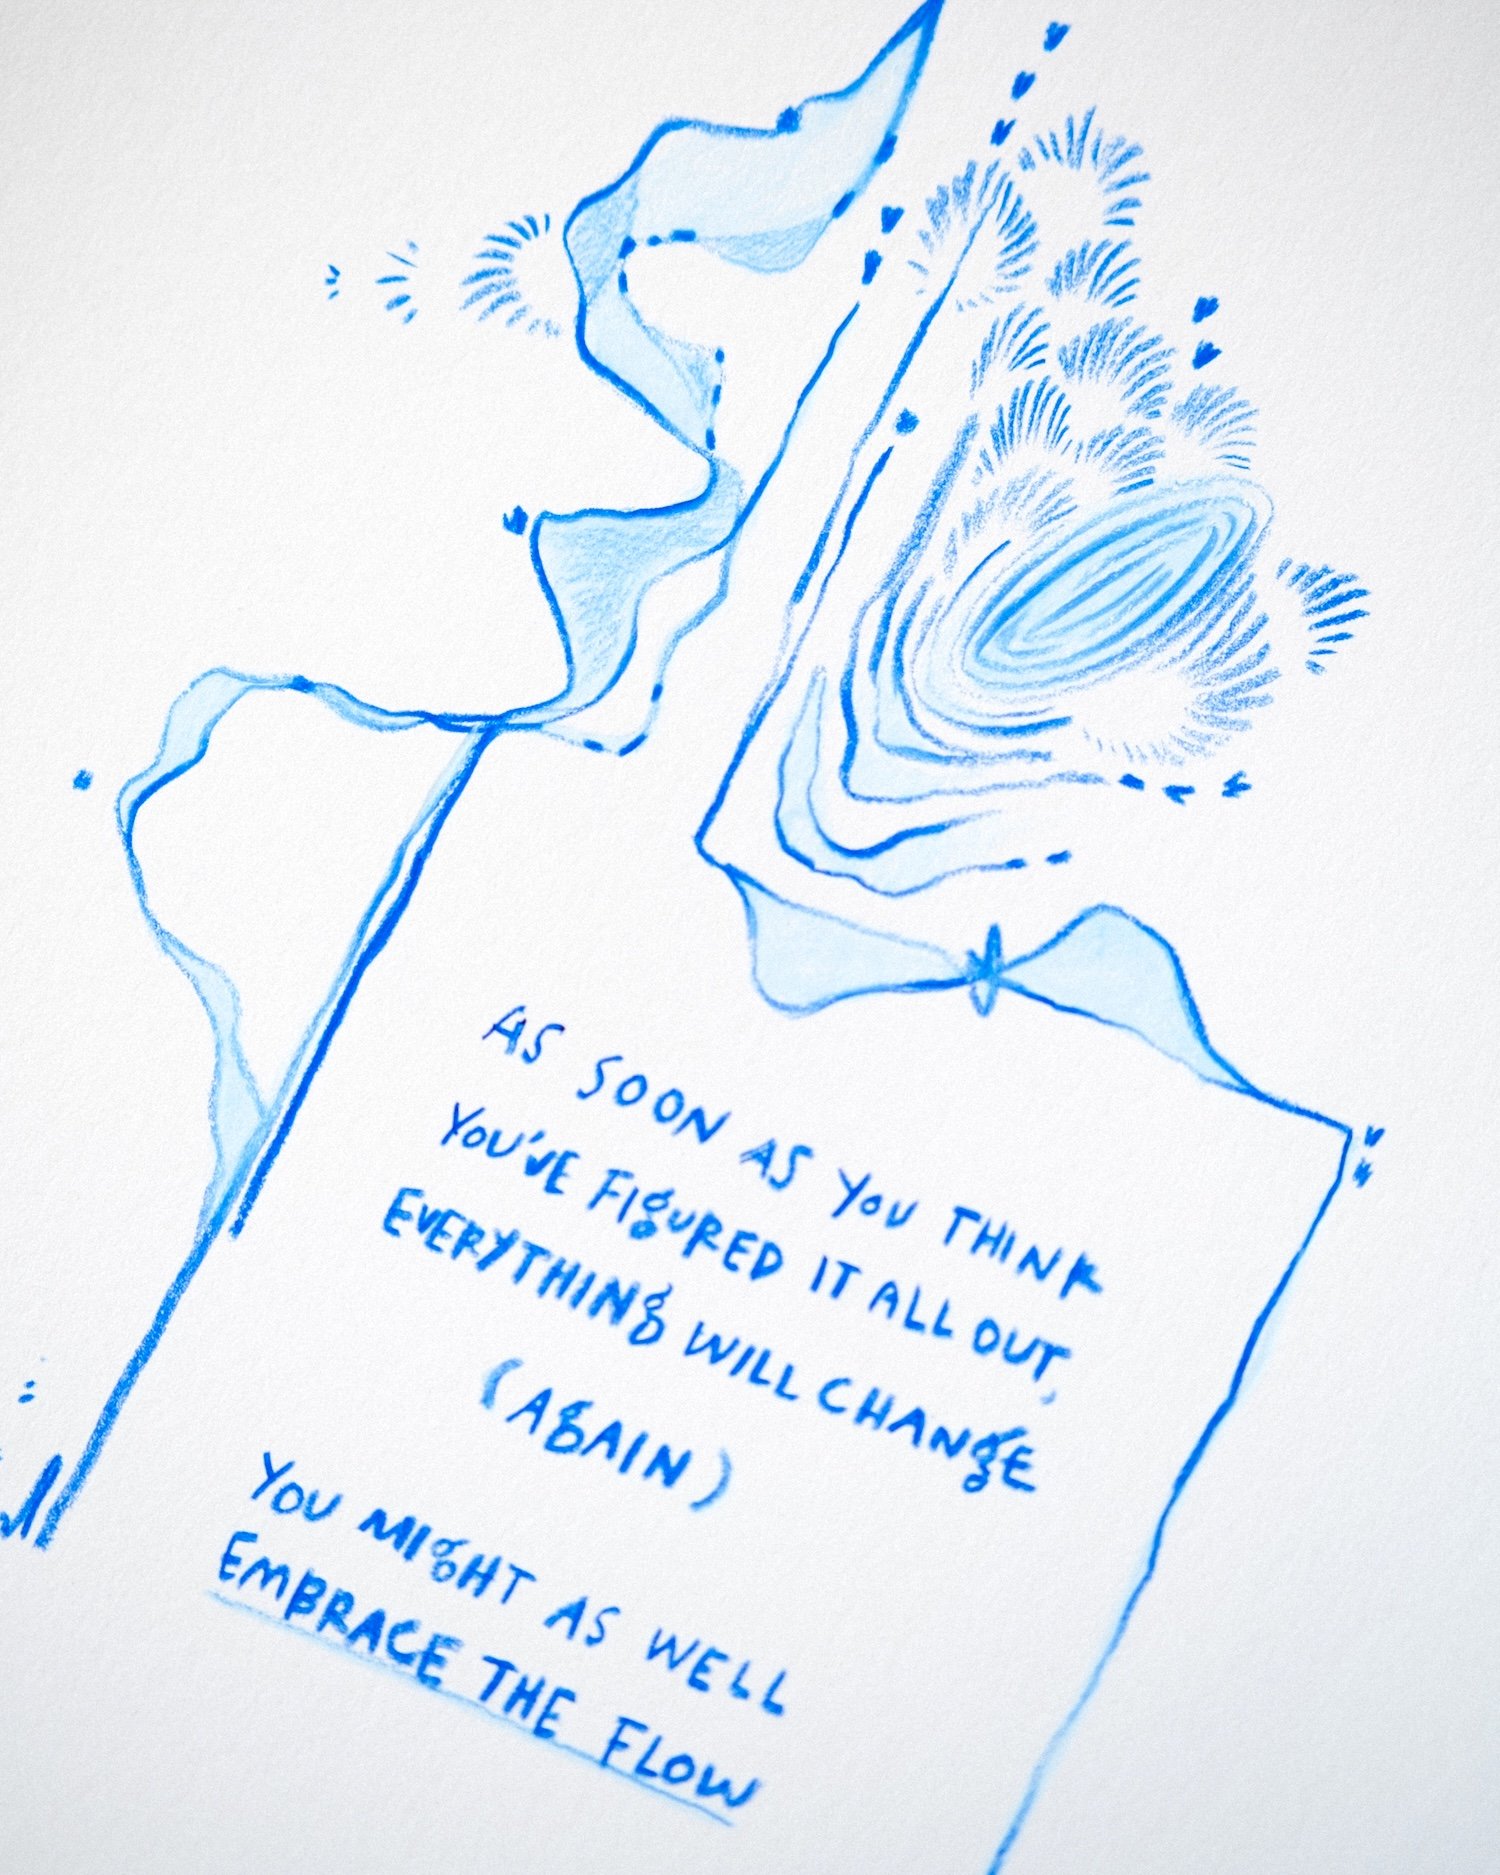 AS SOON AS YOU THINK
YOU'VE FIGURED IT ALL OUT,
EVERYTHING WILL CHANGE
(AGAIN)
YOU MIGHT AS WELL
EMBRACE THE FLOW